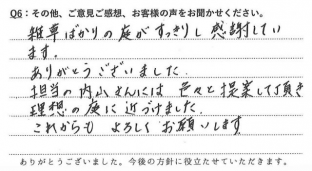 Q6：その他、ご意見ご感想、お客様の声をお聞かせください。
雑草ばかりの庭がすっきりし感謝してい
ます。
ありがとうございました。
担当の内山さんには色々と提案して頂き
理想の庭に近づけました。
これからも よろしくお願いします
ありがとうございました。今後の方針に役立たせていただきます。